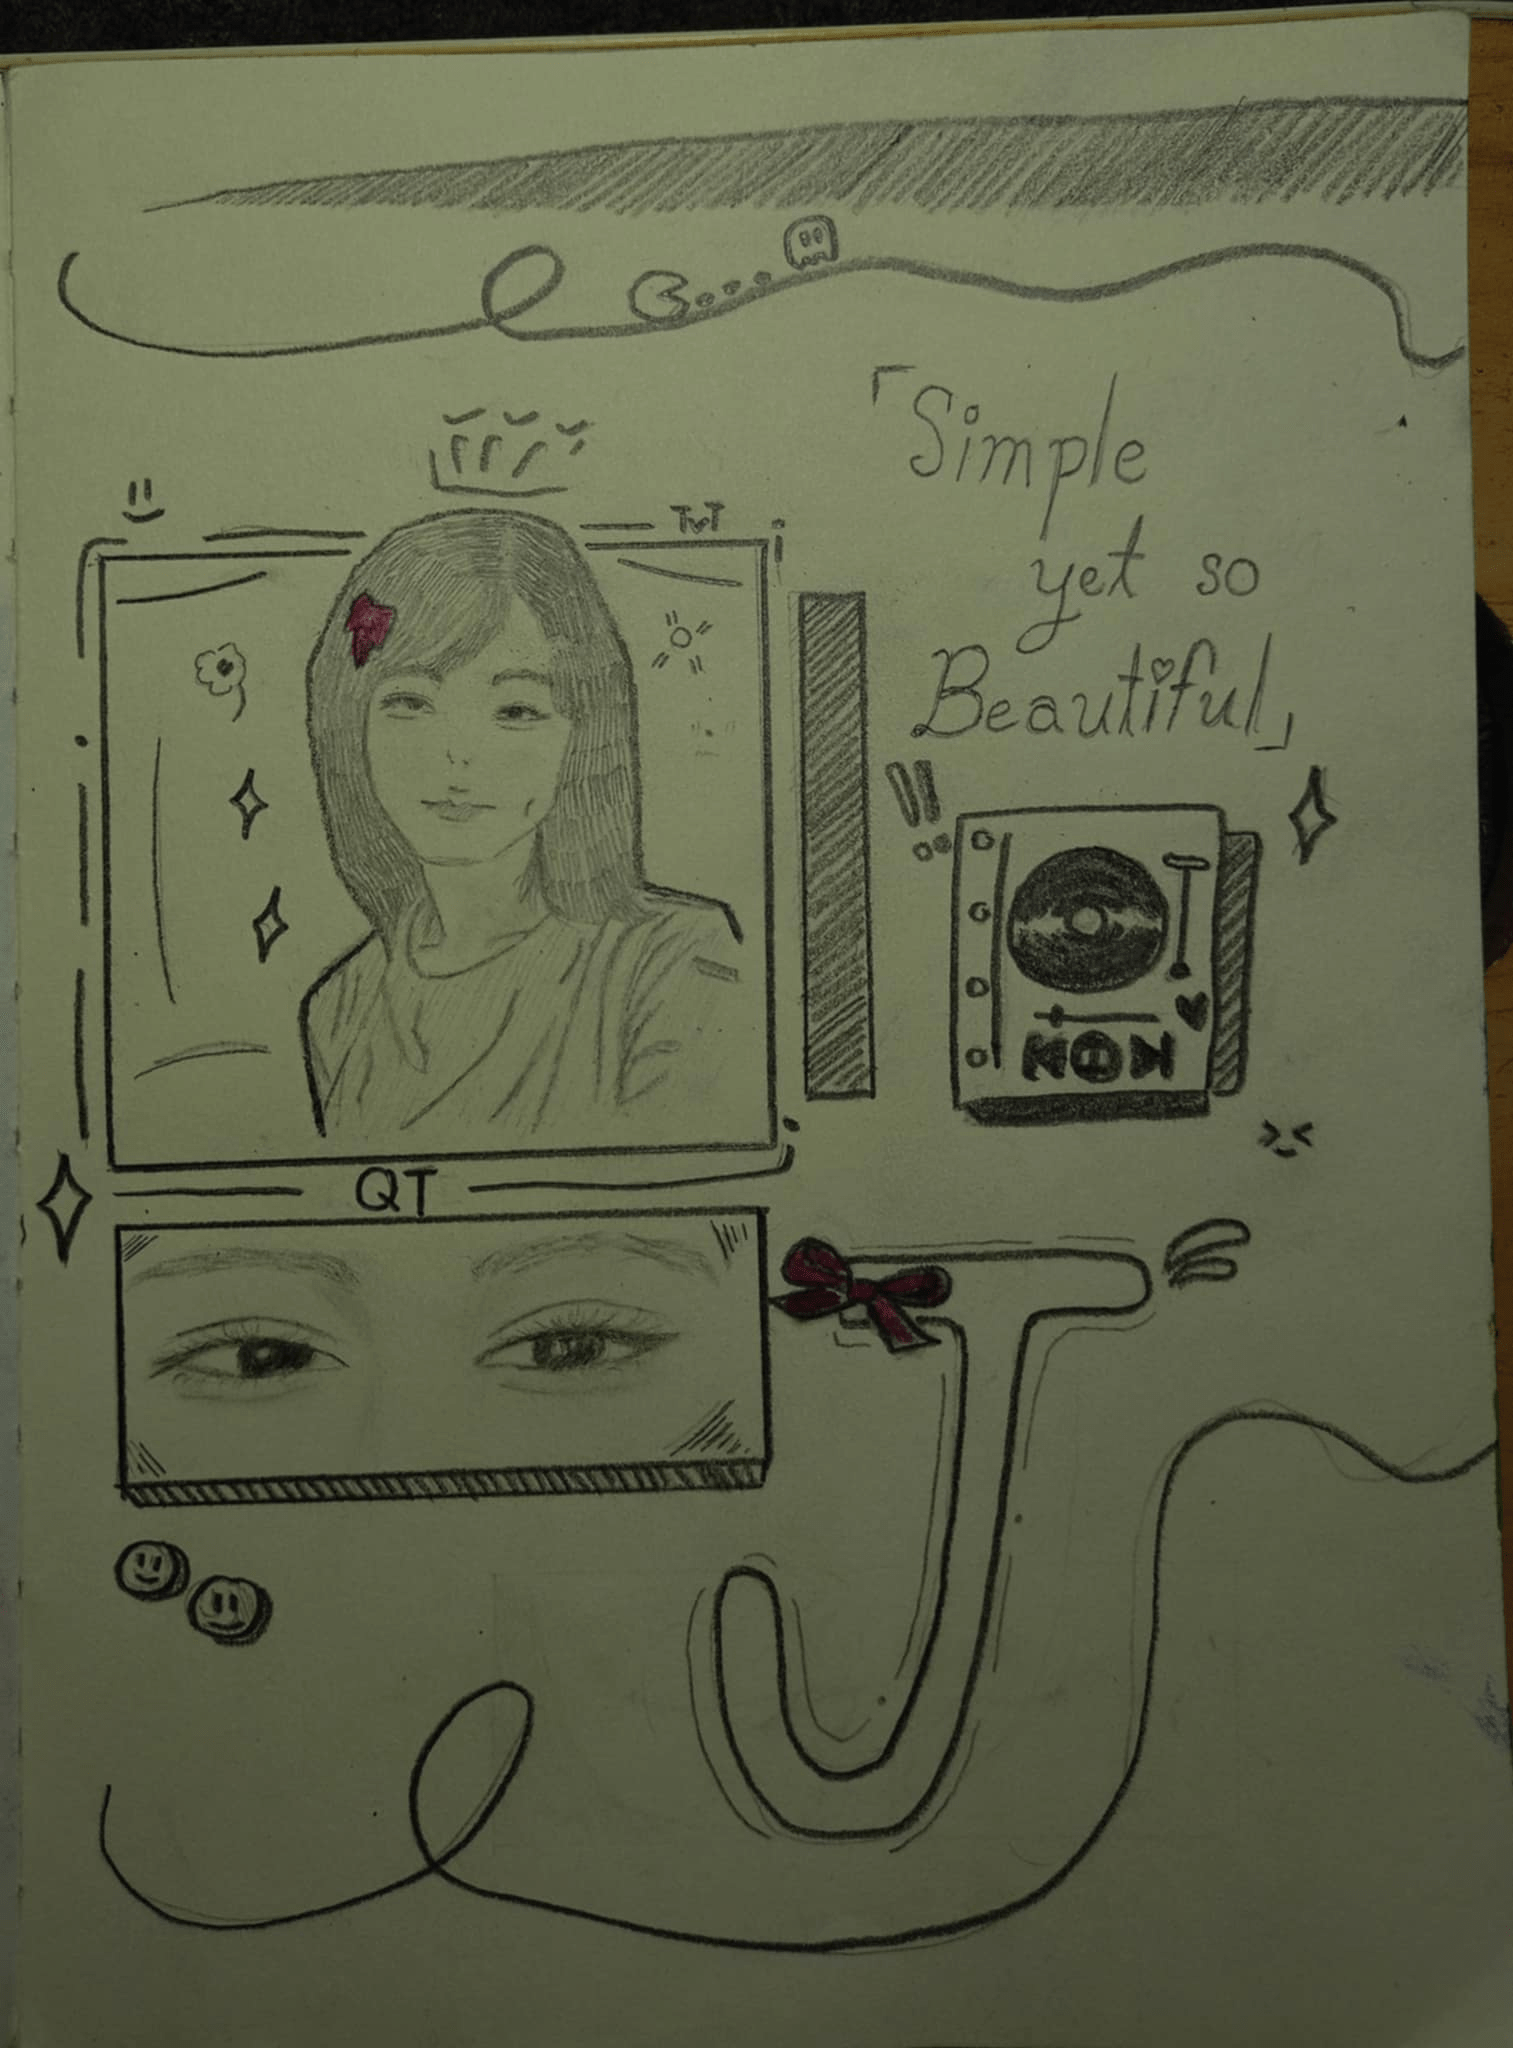 「Simple
yet so
Beautiful」
TvT
QT
J